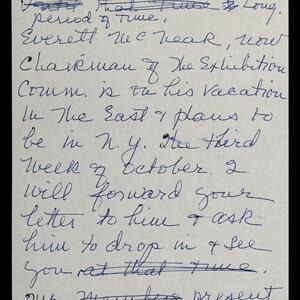 that time long.
period of time.
Everett McNear, now
Chairman of The Exhibition
Comm. is on his vacation
In The East & plans to
be in N.Y. The third
Week of October. I
Will forward your
letter to him & ask
him to drop in & see
you at that time.
our present